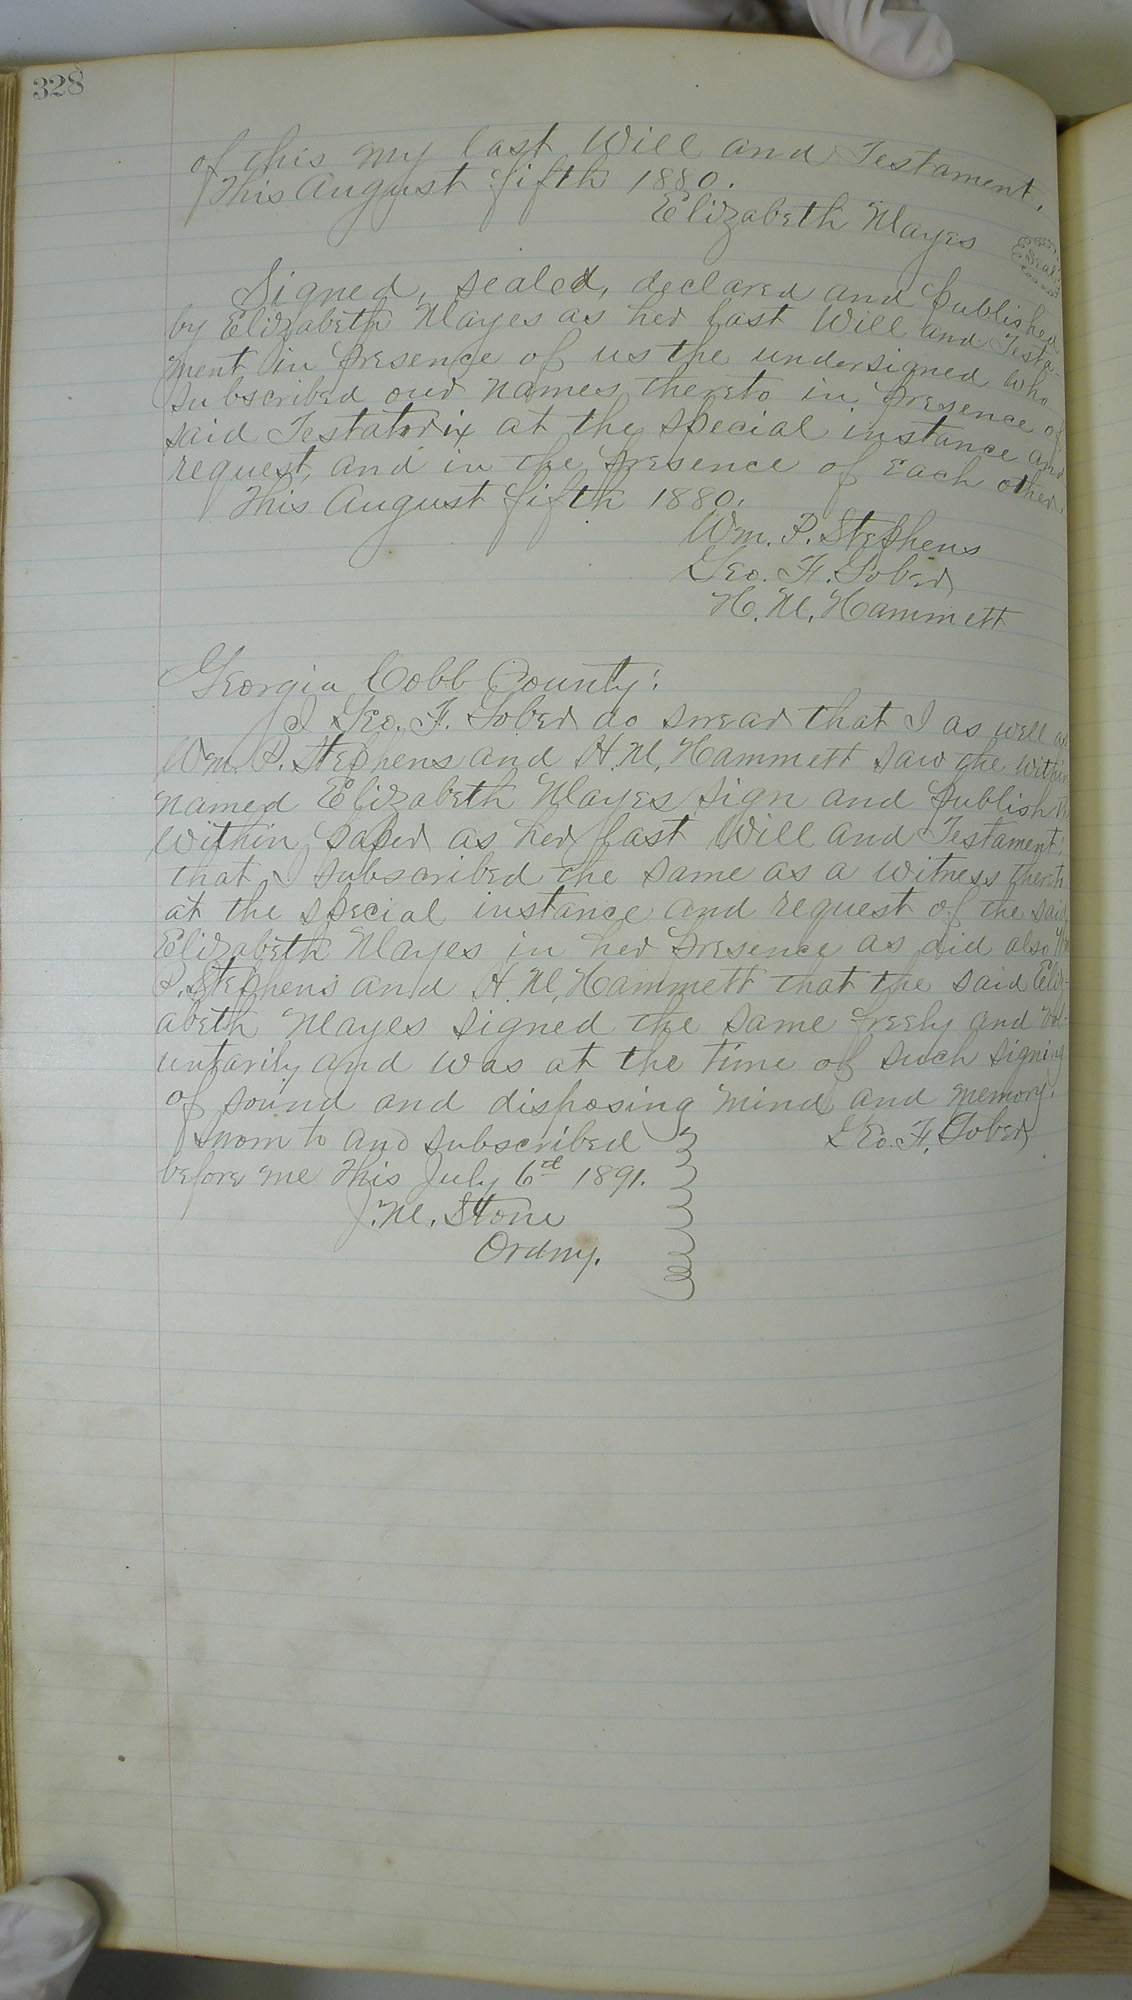 328
of this my last Will and Testament.
This August fifth 1880.
Elizabeth Mayes
Seal
Signed, sealed, declared and published
by Elizabeth Mayes as her last Will and Testa-
ment in presence of us the undersigned who
subscribed our names thereto in presence of
said Testatorix at the special instance and
request, and in the presence of each other.
This August fifth 1880.
Wm. P. Stephens
Geo. F. Gober
H. M. Hammett
Georgia Cobb County:
I Geo. F. Gober do swear that I as well as
Wm. P. Stephens and H. M. Hammett saw the within
named Elizabeth Mayes sign and publish the
within paper as her last Will and Testament;
that I subscribed the same as a witness thereto
at the special instance and request of the said
Elizabeth Mayes in her presence as did also Wm
P. Stephens and H. M. Hammett that the said Eliz-
abeth Mayes signed the same freely and vol-
untarily and was at the time of such signing
of sound and disposing mind and memory.
Sworn to and subscribed
Geo. F. Gober
before me this July 6th 1891.
J. M. Stone
Ordny.